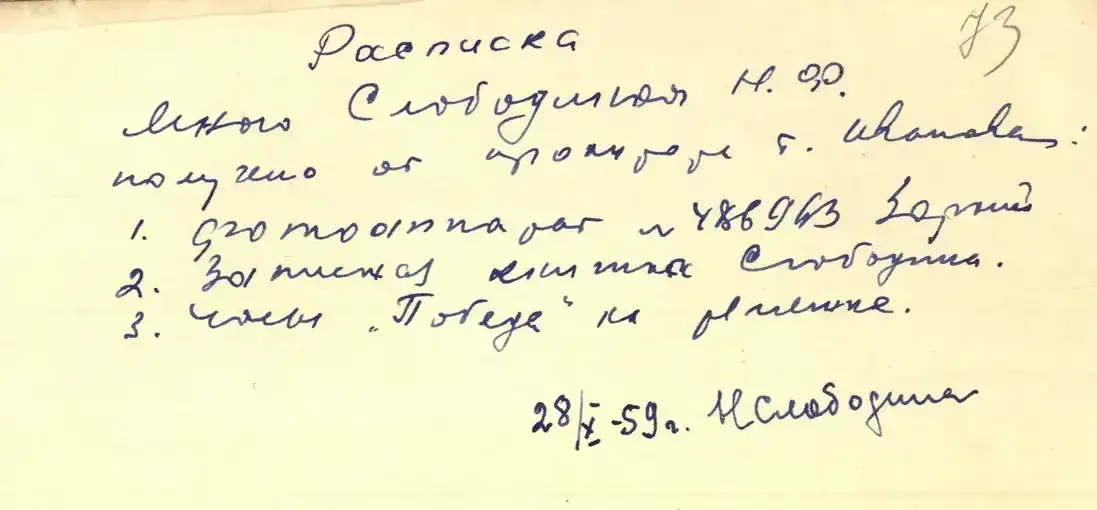 73
Расписка
Мною Слободиной Н. Ф.
получено от прокурора т. Иванова:
1. Фотоаппарат № 486963 Зоркий
2. Записная книжка Слободина.
3. Часы „Победа" на ремешке.
28/X-59 г. НСлободина